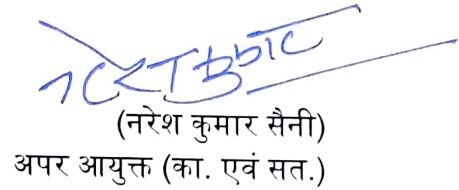 (नरेश कुमार सैनी)
अपर आयुक्त (का. एवं सत.)